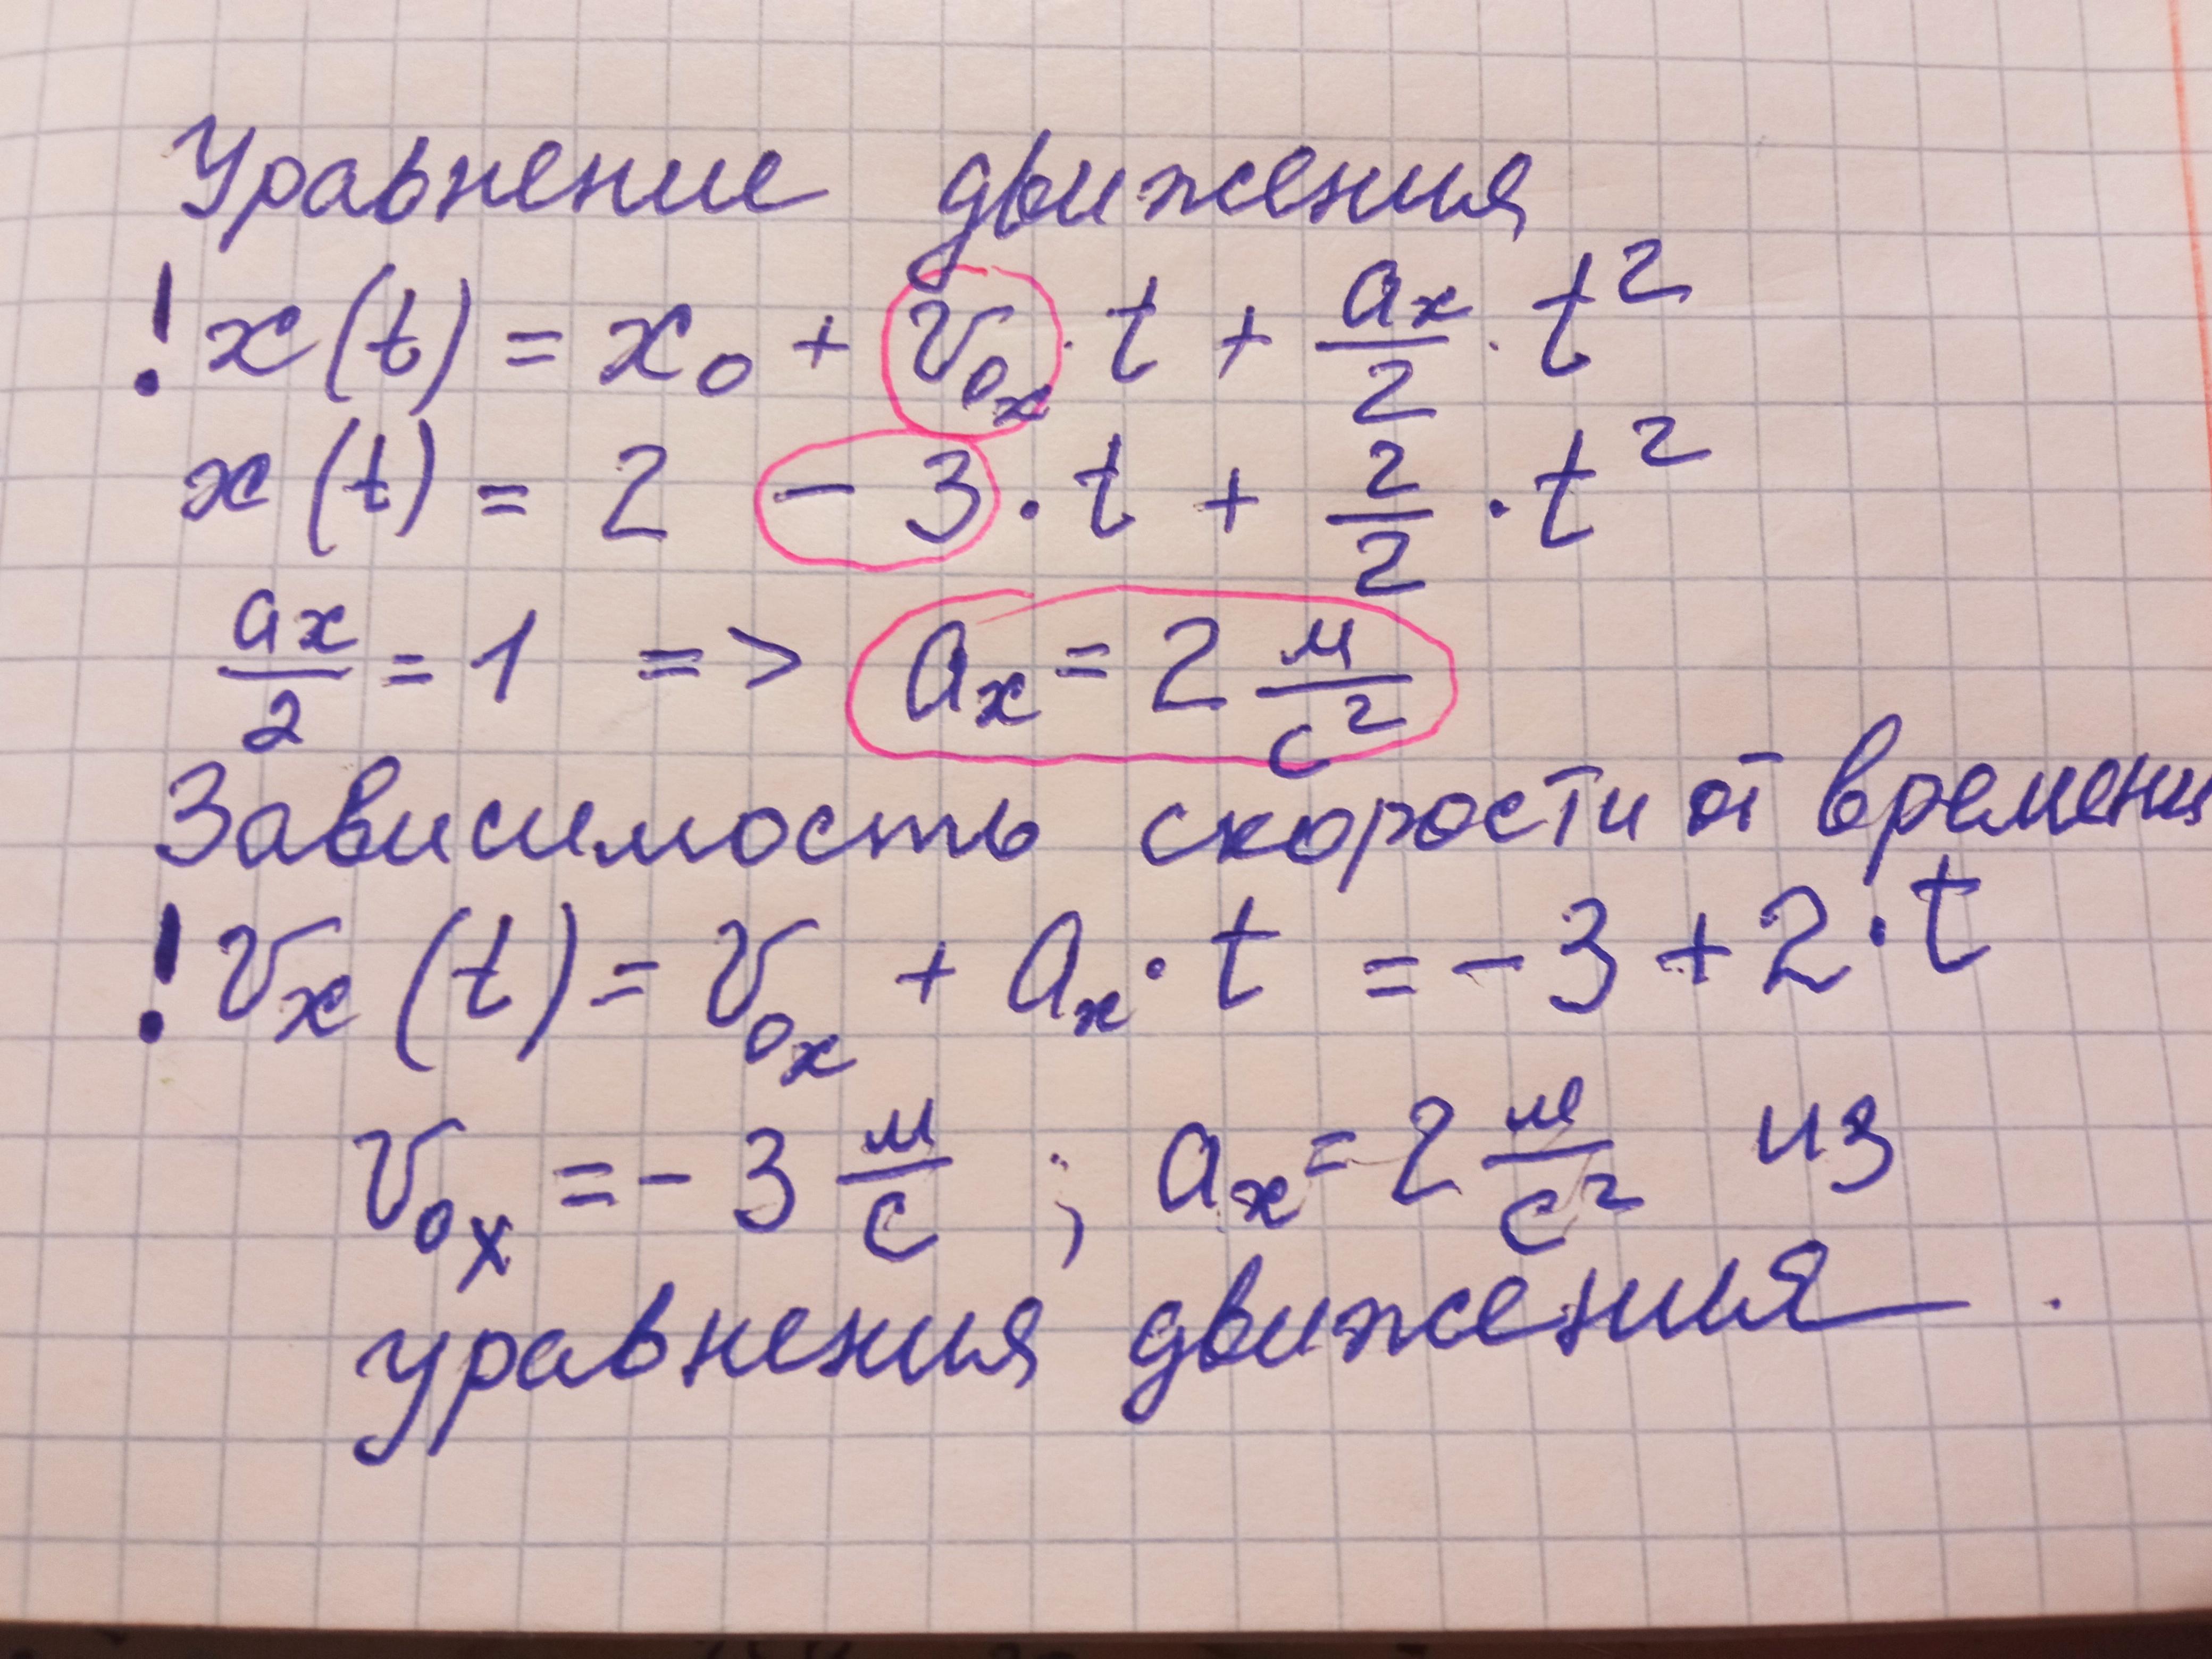 Уравнение движения
! x(t) = x₀ + v₀ₓ · t + aₓ/2 · t²
x(t) = 2 - 3 · t + 2/2 · t²
aₓ/2 = 1 => aₓ = 2 м/с²
Зависимость скорости от времени
! vₓ(t) = v₀ₓ + aₓ · t = - 3 + 2 · t
v₀ₓ = - 3 м/с ; aₓ = 2 м/с² из
уравнения движения .